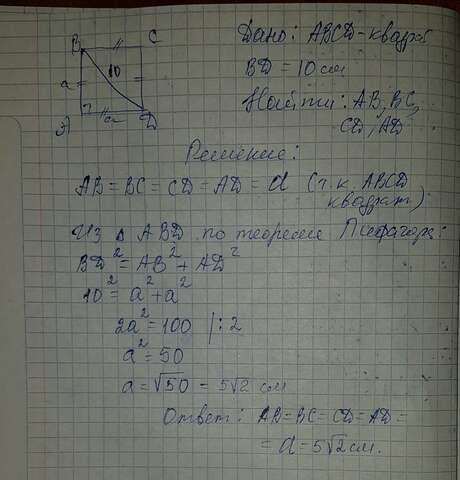 B C
Дано: ABCD - квадрат
a 10
BD = 10 см
A a D
Найти: AB, BC,
CD, AD
Решение:
AB = BC = CD = AD = a (т.к ABCD
квадрат)
Из Δ ABD по теореме Пифагора:
BD² = AB² + AD²
10² = a² + a²
2a² = 100 |: 2
a² = 50
a = √50 = 5√2 см
Ответ: AB = BC = CD = AD =
= a = 5√2 см.